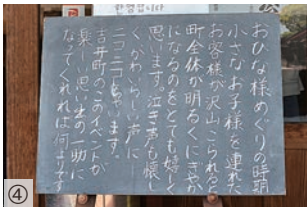 おひな様めぐりの時期
小さなお子様を連れた
お客様が沢山こられると
町全体が明るくにぎやか
になるのをとても嬉しく
思います。泣き声も懐し
く、かわいらしい声に
ニコニコしちゃいます。
吉井町のこのイベントが
楽しい思い出の一助に
なってくれれば何よりです
④